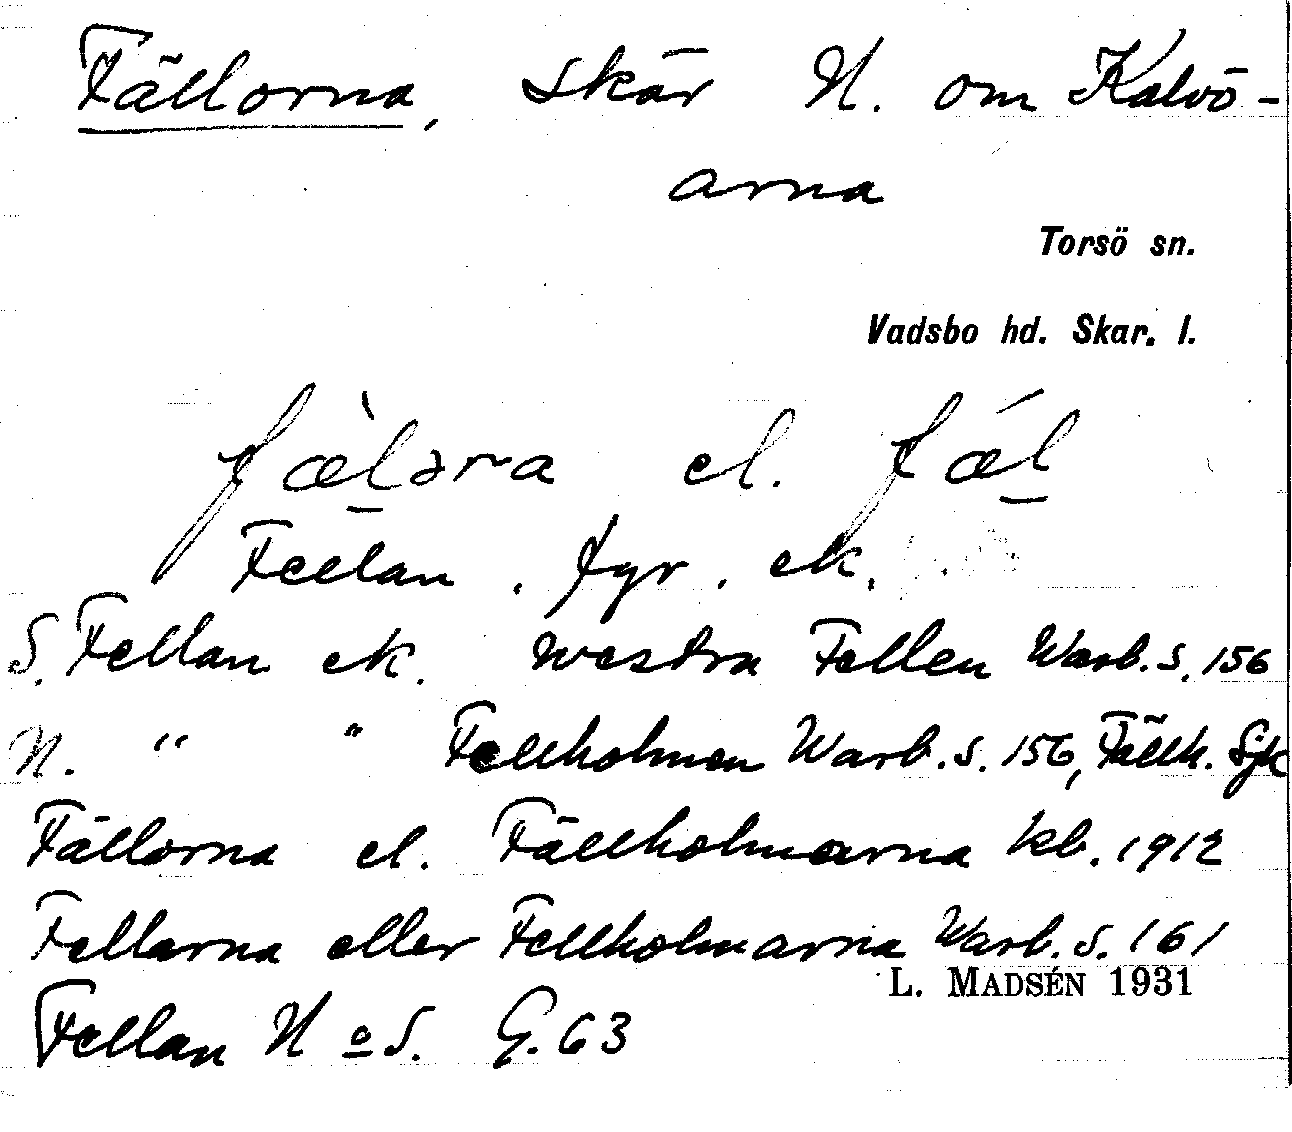 Fällorna, skär N. om Kalvö-
arna
Torsö sn.
Vadsbo hd. Skar. l.
fæ̀lɔra el. fǽl
Fellan, fyr, ek.
S. Fellan ek. westra Fellen Warb. s. 156
N. " " Fellholmen Warb. s. 156, Fällh. Sjk
Fällorna el. Fällholmarna kb. 1912
Fellarna eller Fellholmarna Warb. s. 161
L. MADSÉN 1931
Fellan N o S. G. 63